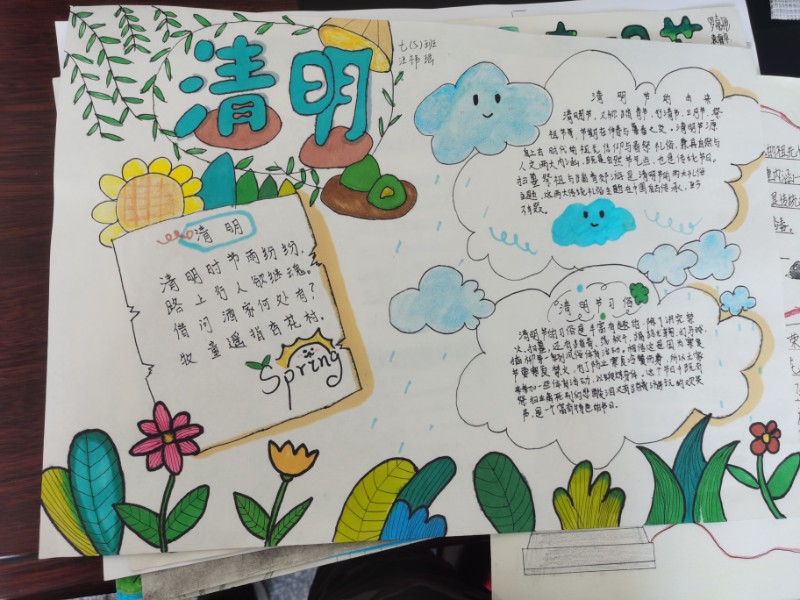 清明
七(5)班
清明
清明时节雨纷纷,
路上行人欲断魂。
借问酒家何处有?
牧童遥指杏花村。
Spring
清明节的由来
清明节,又称踏青节、行清节、三月节、祭
祖节等,节期在仲春与暮春之交。清明节源
自上古时代的祖先信仰与春祭礼俗,兼具自然与
人文两大内涵,既是自然节气点,也是传统节日。
扫墓祭祖与踏青郊游是清明节的两大礼俗
主题,这两大传统礼俗主题在中国自古传承,至今
不辍。
清明节习俗
清明节的习俗是丰富有趣的,除了讲究禁
火、扫墓,还有踏青、荡秋千、
节要寒食禁火,为了防止寒食冷餐伤身,所以大家
来参加一些体育活动,以锻炼身体。这个节日中既有
节,是一个富有特色的节日。